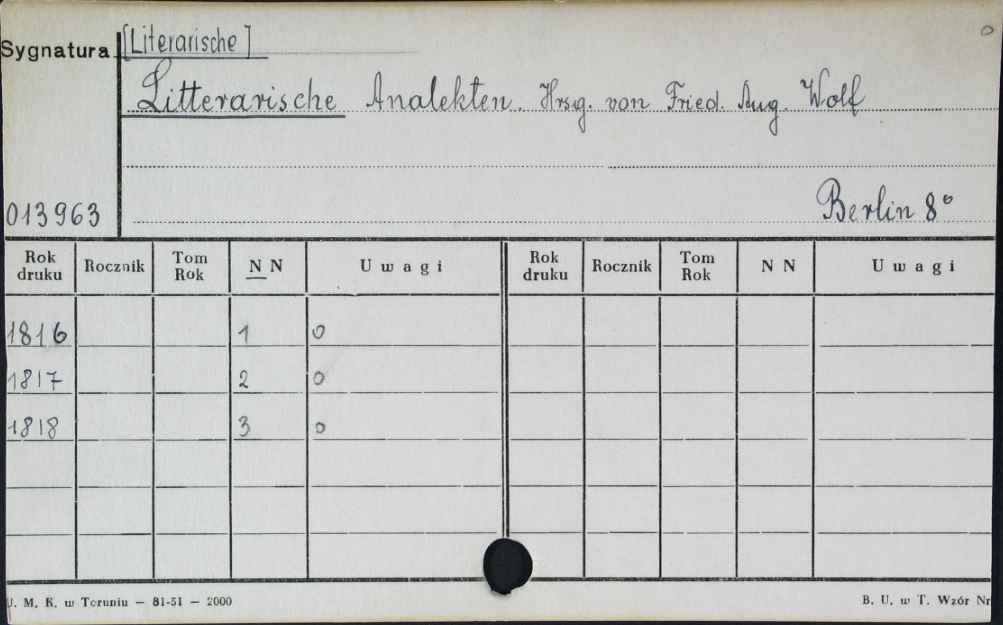 [Literarische]
o
Sygnatura
Litterarische Analekten. Hrsg. von Fried. Aug. Wolf
013963
Berlin 8°
Rok druku Rocznik Tom Rok N N Uwagi Rok druku Rocznik Tom Rok N N Uwagi
1816 1 o
1817 2 o
1818 3 o
U. M. K. w Toruniu — 81-51 — 2000 B. U. w T. Wzór Nr